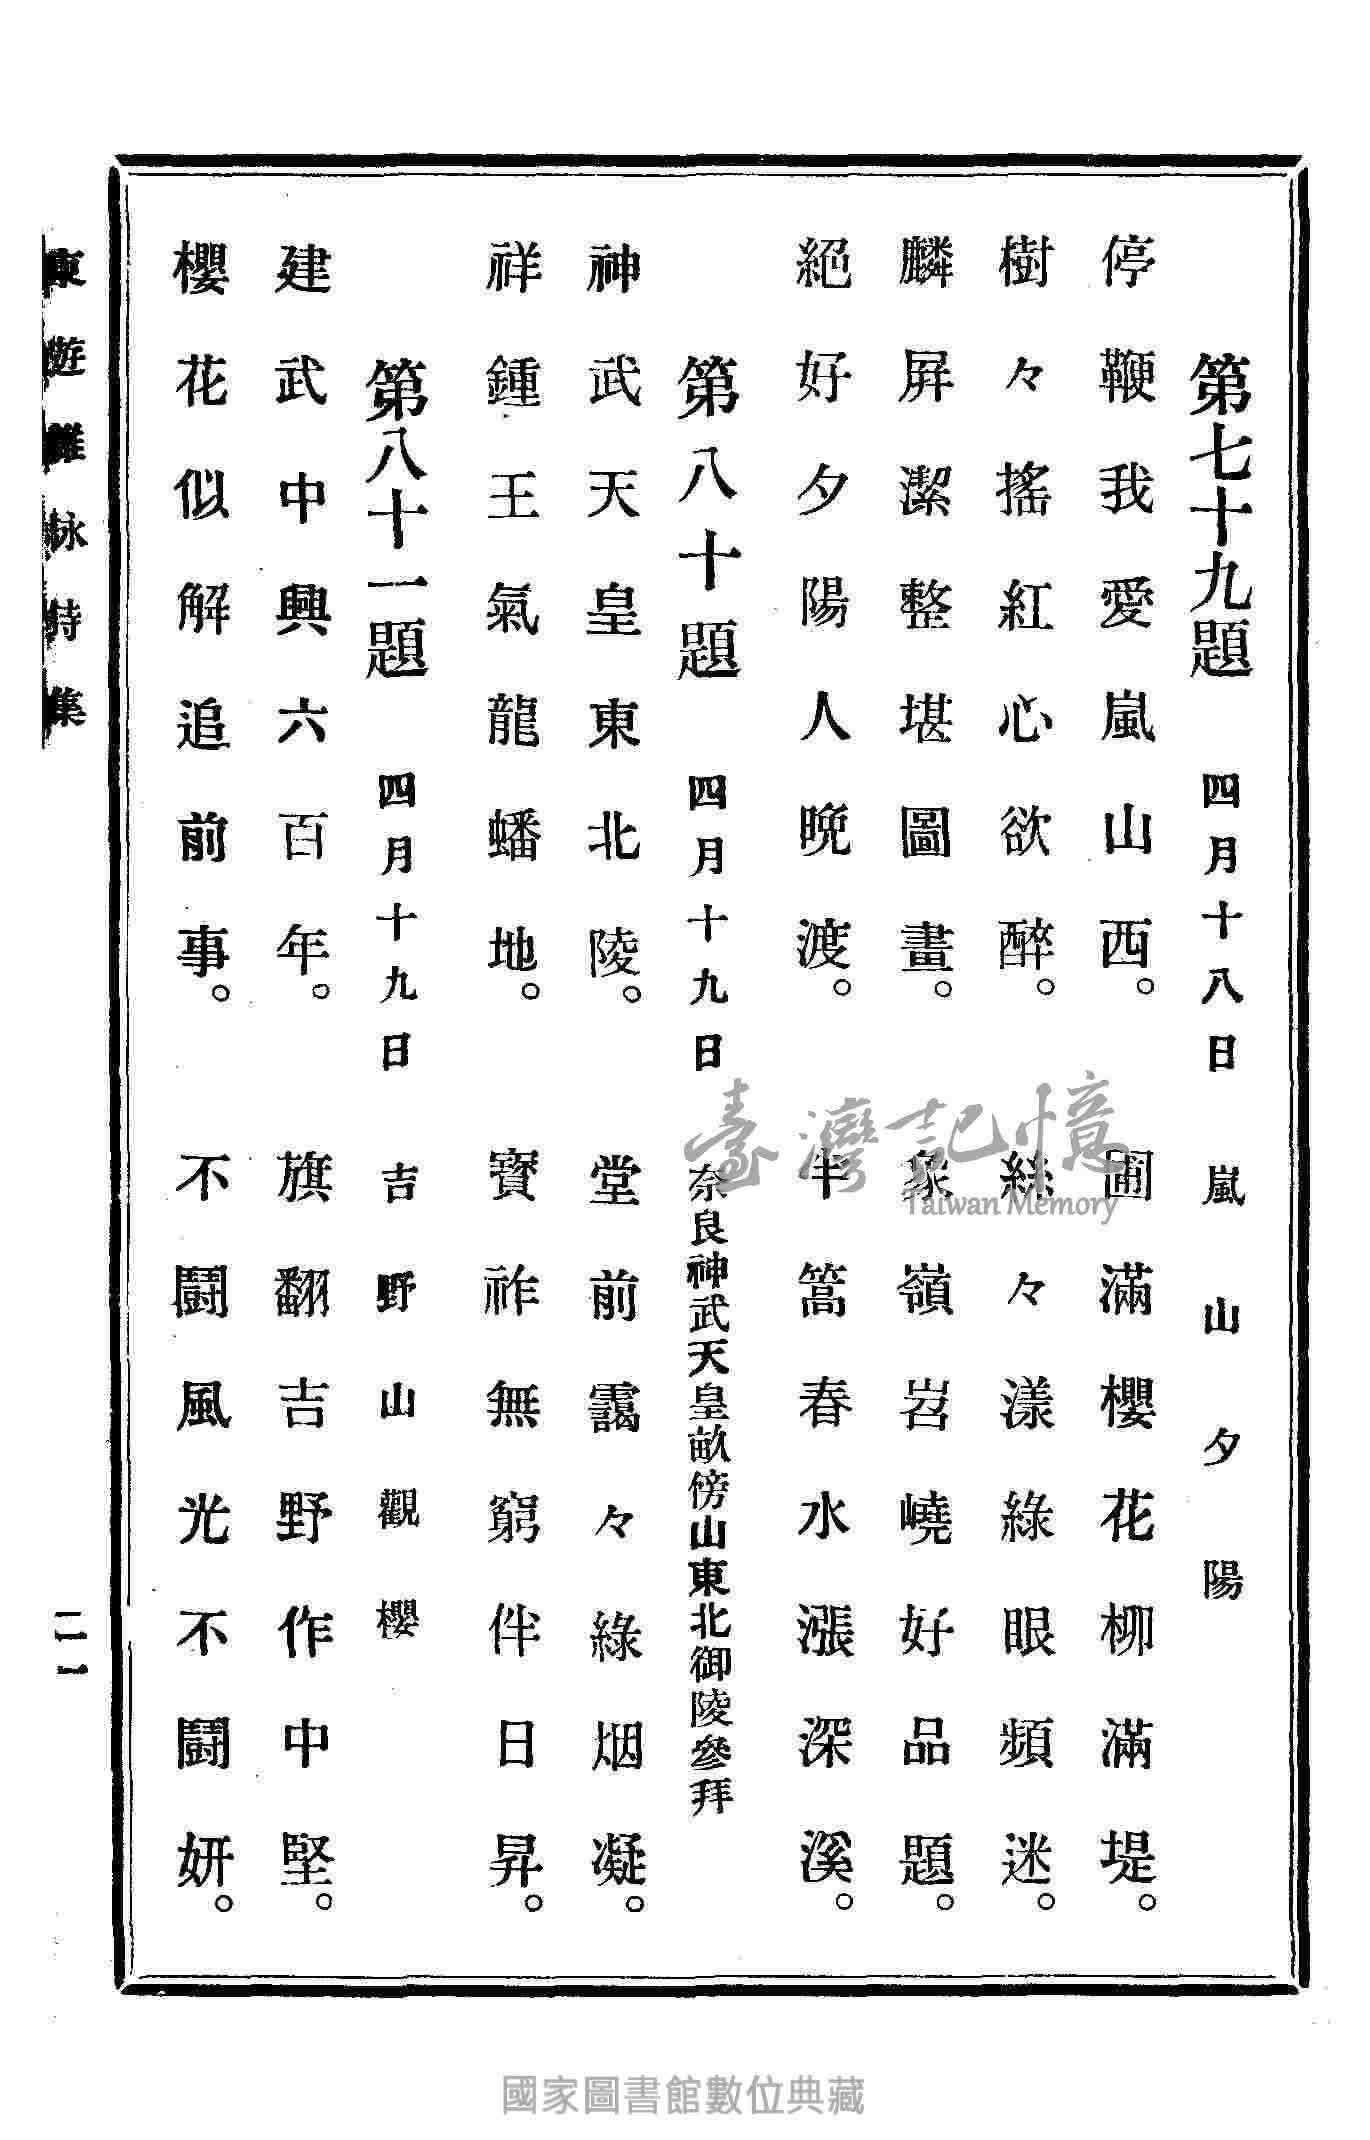 第七十九題 四月十八日 嵐山夕陽
停鞭我愛嵐山西。 圃滿櫻花柳滿堤。
樹々搖紅心欲醉。 絲々漾綠眼頻迷。
麟屏潔整堪圖畫。 象嶺岧嶢好品題。
絕好夕陽人晚渡。 半篙春水漲深溪。
第八十題 四月十九日 奈良神武天皇畝傍山東北御陵參拜
神武天皇東北陵。 堂前靄々綠烟凝。
祥鍾王氣龍蟠地。 寶祚無窮伴日昇。
第八十一題 四月十九日 吉野山觀櫻
建武中興六百年。 旗翻吉野作中堅。
櫻花似解追前事。 不鬪風光不鬪妍。
東遊雜詠詩集
二一
臺灣記憶
Taiwan Memory
國家圖書館數位典藏